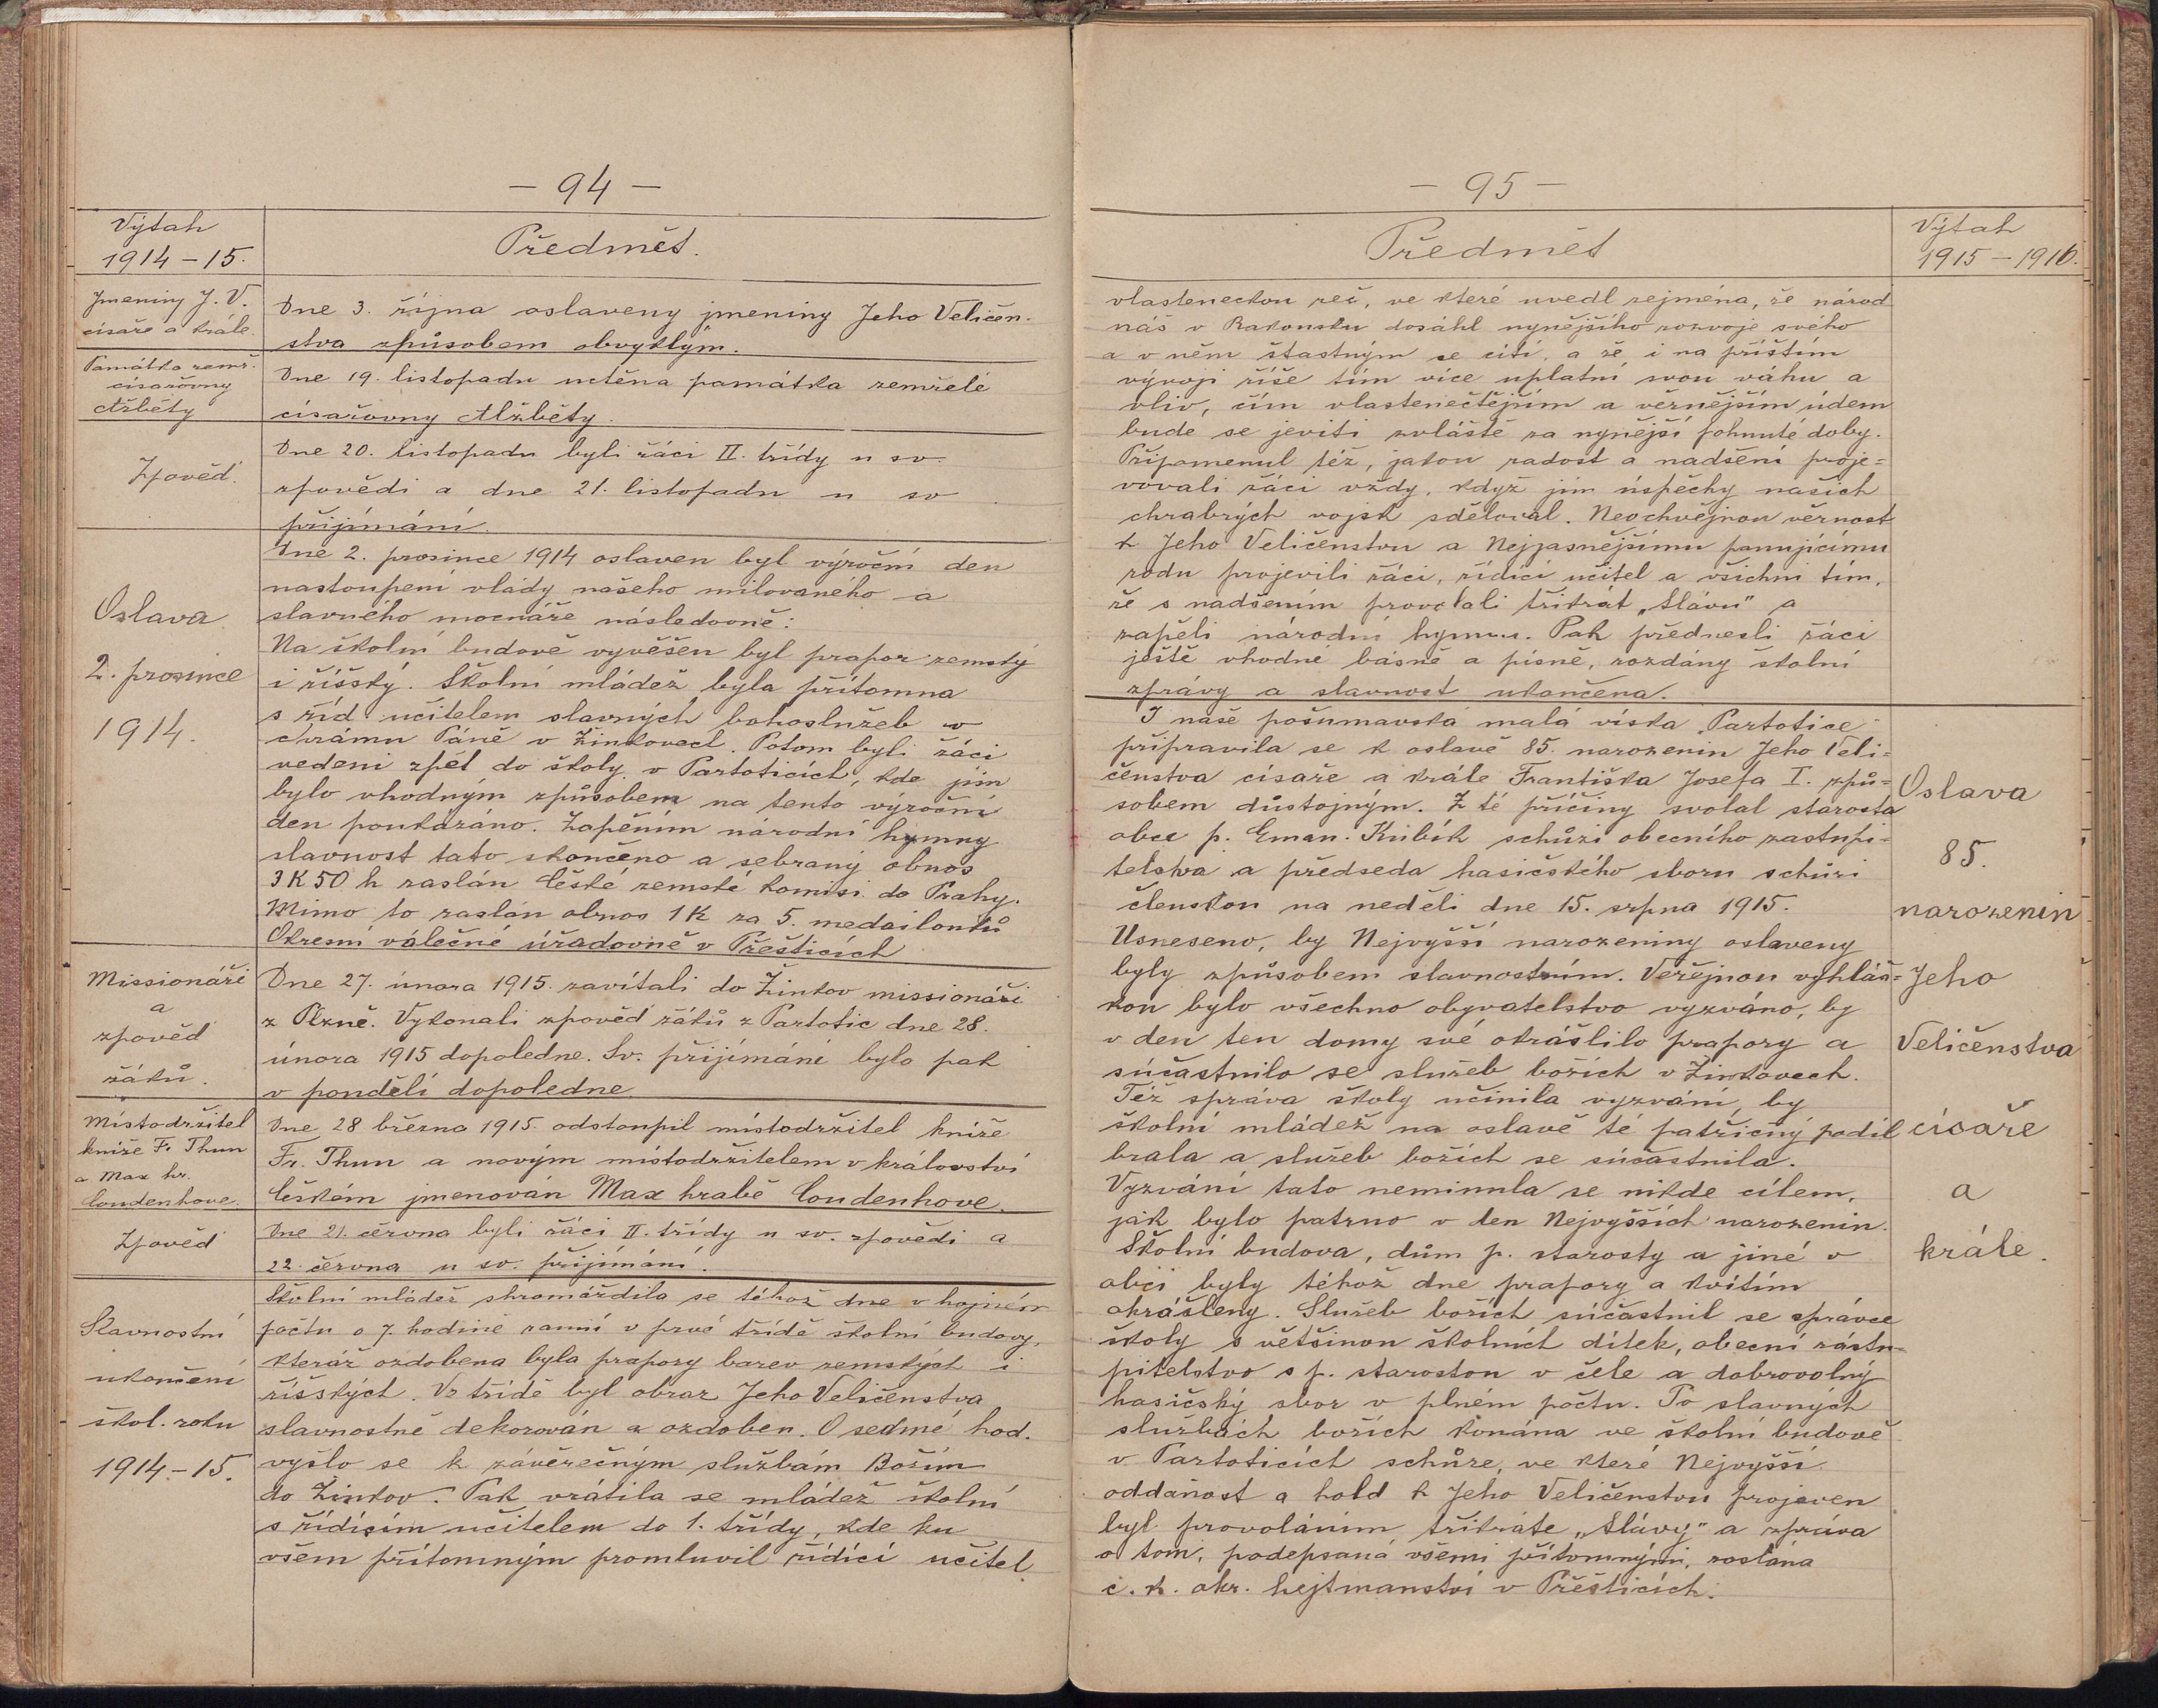 – 94 –
Výtah
1914 – 15.
Předmět.
Jmeniny J. V.
císaře a krále.
Dne 3. října oslaveny jmeniny Jeho Veličen-
stva způsobem obvyklým.
Památka zemř.
císařovny
Alžběty
Dne 19. listopadu uctěna památka zemřelé
císařovny Alžběty.
Zpověď.
Dne 20. listopadu byli žáci II. třídy u sv.
zpovědi a dne 21. listopadu u sv.
přijímání.
Oslava
2. prosince
1914.
Dne 2. prosince 1914 oslaven byl výroční den
nastoupení vlády našeho milovaného a
slavného mocnáře následovně:
Na školní budově vyvěšen byl prapor zemský
i říšský. Školní mládež byla přítomna
s říd. učitelem slavných bohoslužeb v
chrámu Páně v Žinkovech. Potom byli žáci
vedeni zpět do školy v Partoticích, kde jim
bylo vhodným způsobem na tento výroční
den poukázáno. Zapěním národní hymny
slavnost tato skončeno a sebraný obnos
3 K 50 h zaslán české zemské komisi do Prahy.
Mimo to zaslán obnos 1 K za 5. medailonků
Okresní válečné úřadovně v Přešticích
Missionáři
a
zpověď
žáků.
Dne 27. února 1915. zavítali do Žinkov missionáři
z Plzně. Vykonali zpověď žáků z Partotic dne 28.
února 1915 dopoledne. Sv. přijímání bylo pak
v pondělí dopoledne.
Místodržitel
kníže Fr. Thun
a Max hr.
Coudenhove.
Dne 28 března 1915. odstoupil místodržitel kníže
Fr. Thun a novým místodržitelem v království
českém jmenován Max hrabě Coudenhove.
Zpověď
Dne 21. června byli žáci II. třídy u sv. zpovědi a
22. června u sv. přijímání.
Slavnostní
ukončení
škol. roku
1914 – 15.
Školní mládež shromáždila se téhož dne v hojném
počtu o 7. hodině ranní v prvé třídě školní budovy,
kteráž ozdobena byla prapory barev zemských i
říšských. Ve třídě byl obraz Jeho Veličenstva
slavnostně dekorován a ozdoben. O sedmé hod.
vyšlo se k závěrečným službám Božím
do Žinkov. Pak vrátila se mládež školní
s řídícím učitelem do 1. třídy, kde ku
všem přítomným promluvil řídící učitel
– 95 –
Předmět
Výtah
1915 – 1916.
vlasteneckou řeč, ve které uvedl zejména, že národ
náš v Rakousku dosáhl nynějšího rozvoje svého
a v něm šťastným se cítí, a že i na příštím
vývoji říše tím více uplatní svou váhu a
vliv, čím vlastenečtějším a věrnějším údem
bude se jeviti zvláště za nynější pohnuté doby.
Připomenul též, jakou radost a nadšení proje=
vovali žáci vždy, když jim úspěchy našich
chrabrých vojsk sděloval. Neochvějnou věrnost
k Jeho Veličenstvu a Nejjasnějšímu panujícímu
rodu projevili žáci, řídící učitel a všichni tím,
že s nadšením provolali třikrát „Slávu" a
zapěli národní hymnu. Pak přednesli žáci
ještě vhodné básně a písně, rozdány školní
zprávy a slavnost ukončena.
I naše pošumavská malá víska „Partotice"
připravila se k oslavě 85. narozenin Jeho Veli=
čenstva císaře a krále Františka Josefa I. způ=
sobem důstojným. Z té příčiny svolal starosta
obce p. Eman. Kubík schůzi obecního zastupi-
telstva a předseda hasičského sboru schůzi
členskou na neděli dne 15. srpna 1915.
Usneseno, by Nejvyšší narozeniny oslaveny
byly způsobem slavnostním. Veřejnou vyhláš=
kou bylo všechno obyvatelstvo vyzváno, by
v den ten domy své okrášlilo prapory a
súčastnilo se služeb božích v Žinkovech.
Též správa školy učinila vyzvání, by
školní mládež na oslavě té patřičný podíl
brala a služeb božích se súčastnila.
Vyzvání tato neminula se nikde cílem,
jak bylo patrno v den Nejvyšších narozenin.
Školní budova, dům p. starosty a jiné v
obci byly téhož dne prapory a kvítím
okrášleny. Služeb božích súčastnil se správce
školy s většinou školních dítek, obecní zástu-
pitelstvo s p. starostou v čele a dobrovolný
hasičský sbor v plném počtu. Po slavných
službách božích konána ve školní budově
v Partoticích schůze, ve které Nejvyšší
oddanost a hold k Jeho Veličenstvu projeven
byl provoláním třikráte „Slávy" a zpráva
o tom, podepsaná všemi přítomnými, zaslána
c. k. okr. hejtmanství v Přešticích.
Oslava
85.
narozenin
Jeho
Veličenstva
císaře
a
krále.